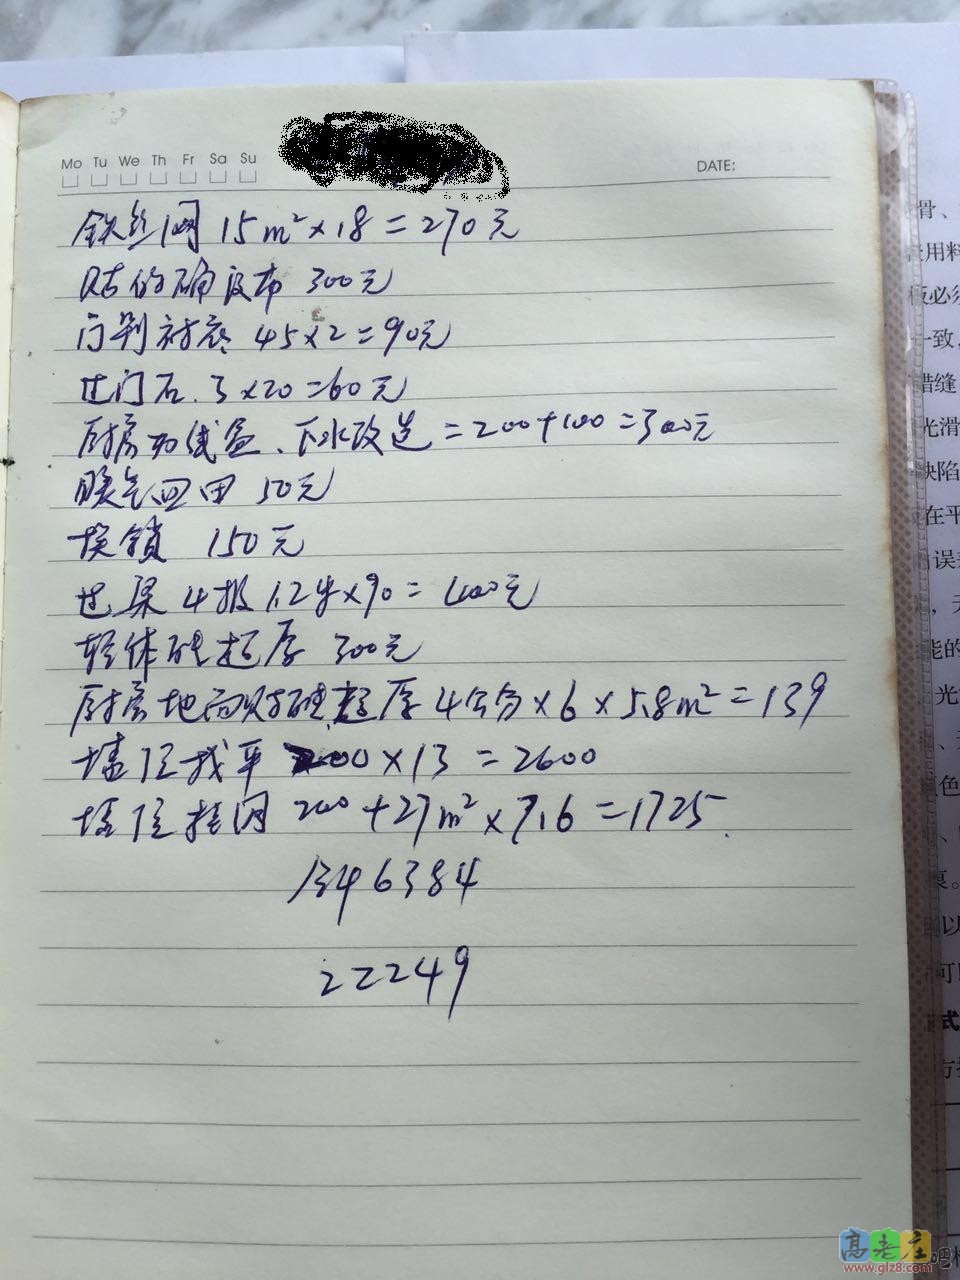 Mo Tu We Th Fr Sa Su
DATE:
铁丝网 15m²×18=270元
贴的确良布 300元
门剁衬底 45×2=90元
过门石.3×20=60元
厨房加线盒、下水改造=200+100=300元
暖气四田 50元
换锁 150元
过梁4根1.2米×90=400元
轻体砖超厚 300元
厨房地面贴砖超厚4公分×6×5.8m²=139
墙顶找平 200×13=2600
墙顶挂网 200+27m²×7.6=1725.
合计6384
22249
骨、
用料
板必须
一致,
错缝
光滑
缺陷
在平
误差
能的
光
色
以
可
式
高老庄吧
www.glz8.com